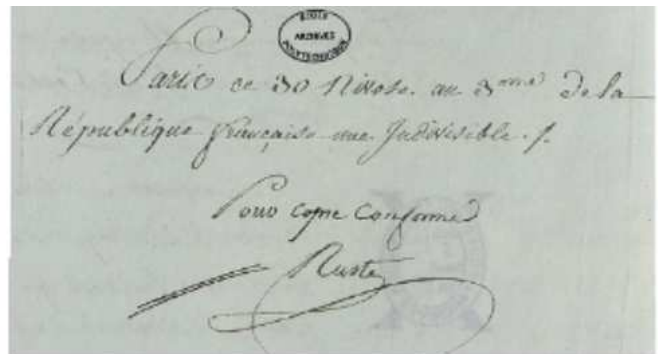 ECOLE
ARCHIVES
POLYTECHNIQUE
Paris ce 30 Nivose an 3me de la
République française une Indivisible ./.
Pour copie conforme